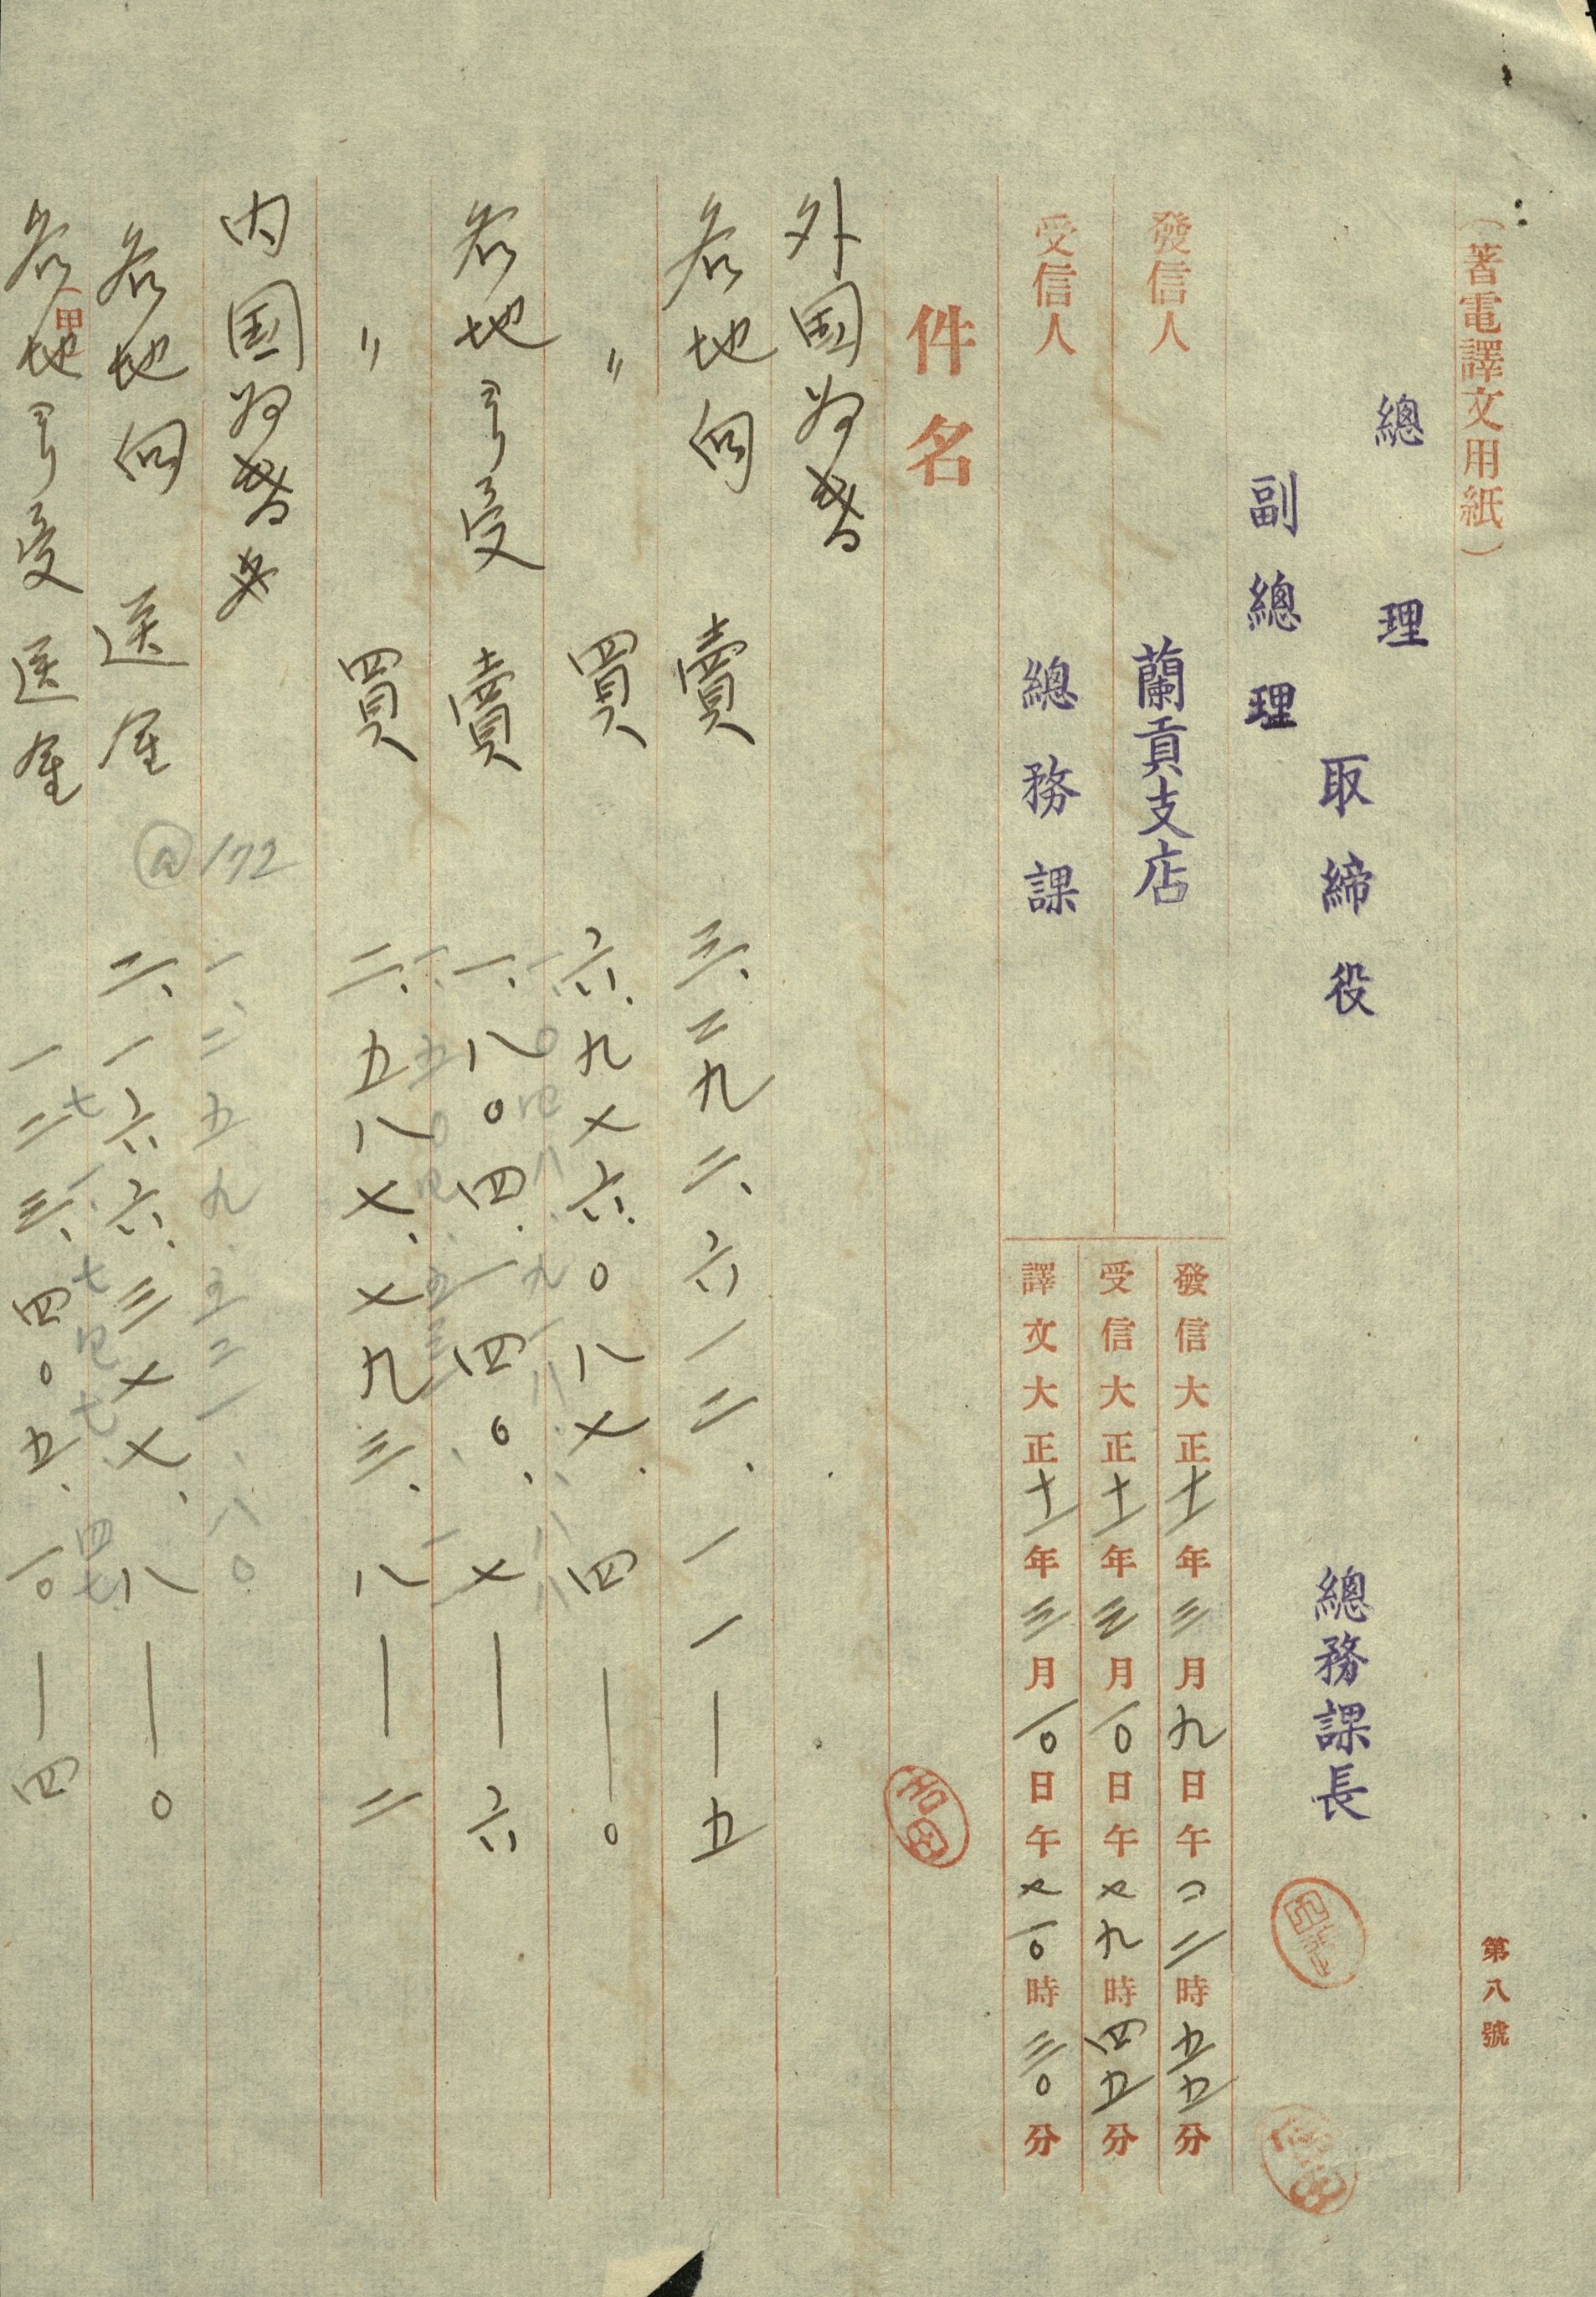 (著電譯文用紙)
第八號
總理
取締役
總務課長
副總理
發信人 蘭貢支店
發信大正十一年三月九日午后二時五五分
受信人 總務課
受信大正十一年三月一〇日午前九時四五分
譯文大正十一年三月一〇日午前一〇時三〇分
件名
吉田
外国為替
各地向 賣 三、二九二、六一二、一一―五
〃 買 六、九七六、〇八七、四―〇
一、〇四八、九一八、八八
各地引受 賣 一、八〇四、一四〇、七―六
一、五〇四、五三一、一一
〃 買 二、五八七、七九三、八―二
内国為替
@172
一、二五九、三二一、八〇
各地向 送金 二、一六六、三七七、八―〇
七一、七四七、四七
各地引受 送金 一二三、四〇五、一〇―四
甲